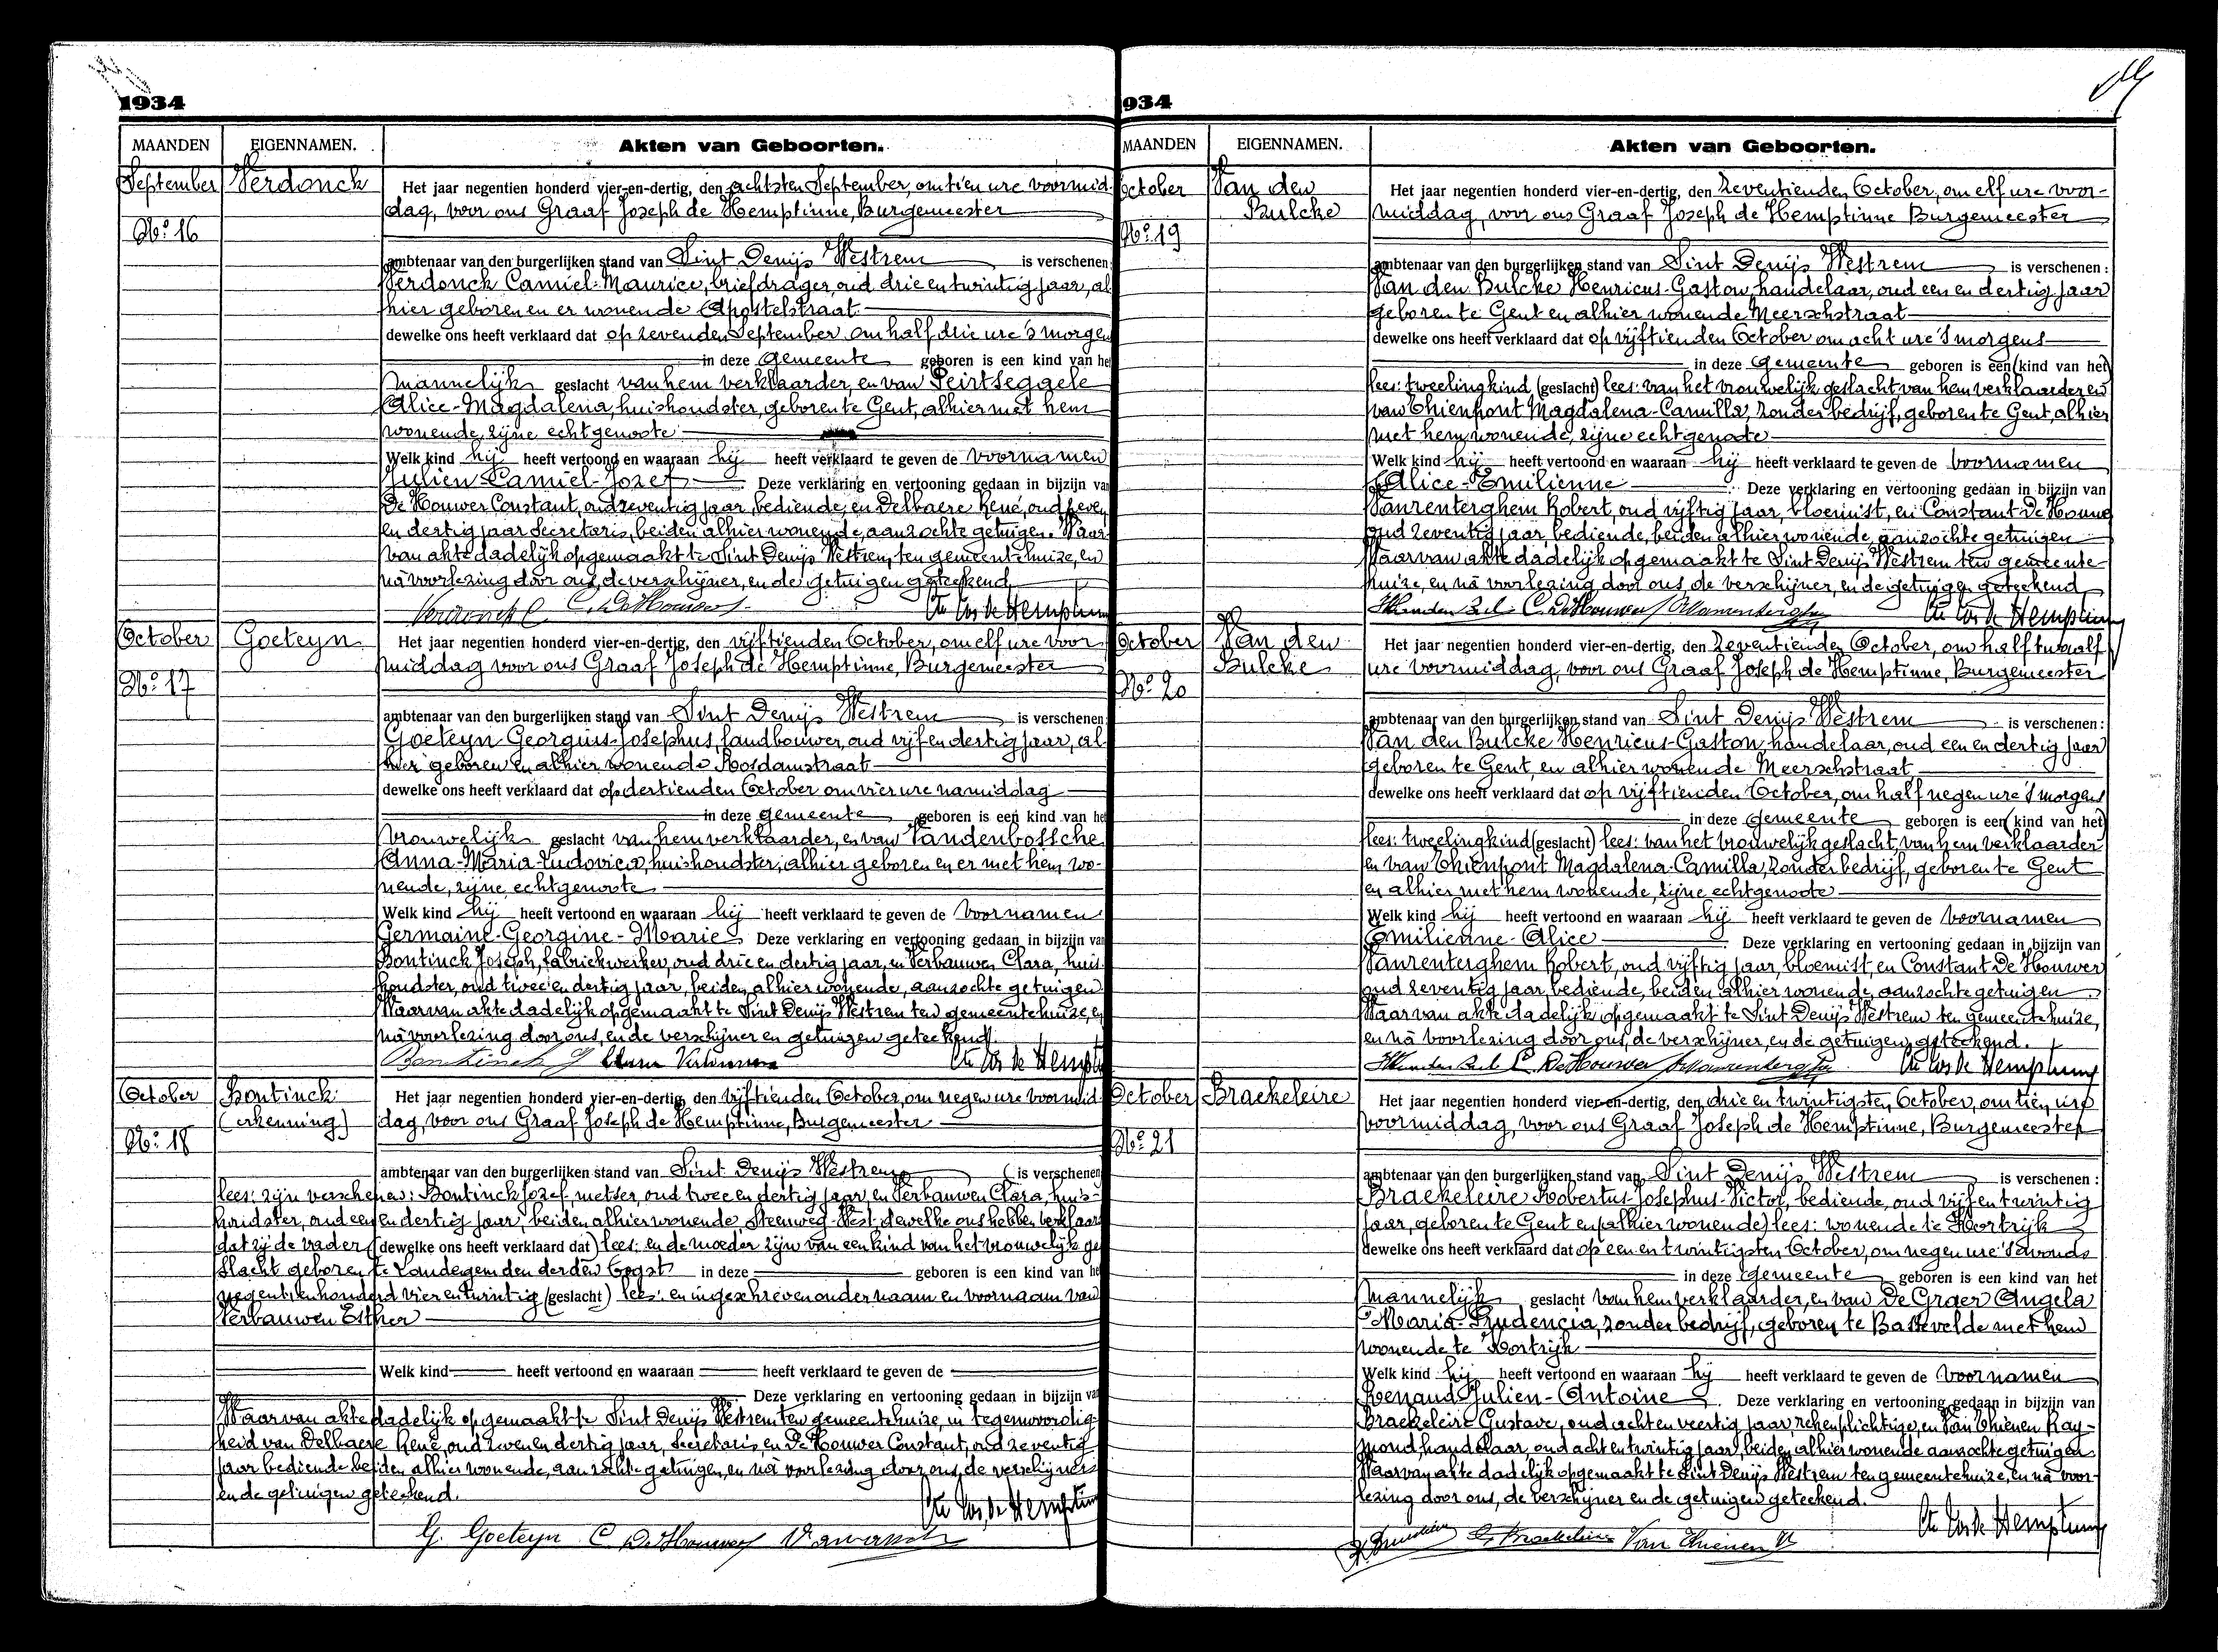 1934
MAANDEN EIGENNAMEN. Akten van Geboorten.
September Verdonck
No. 16
Het jaar negentien honderd vier-en-dertig, den achtsten September, om tien ure voormid-
dag, voor ons Graaf Joseph de Hemptinne, Burgemeester
ambtenaar van den burgerlijken stand van Sint Denijs Westrem is verschenen
Verdonck Camiel-Maurice, briefdrager, oud drie en twintig jaar, al
hier geboren en er wonende Apostelstraat
dewelke ons heeft verklaard dat op zevenden September om half drie ure 's morgen
in deze gemeente geboren is een kind van he
mannelijk geslacht van hem verklaarder, en van Peirtseggele
Alice-Magdalena, huishoudster, geboren te Gent, alhier met hem
wonende, zijne echtgenoote
Welk kind hij heeft vertoond en waaraan hij heeft verklaard te geven de voornamen
Julien-Camiel-Jozef Deze verklaring en vertooning gedaan in bijzijn va
De Houwer Constant, oud zeventig jaar, bediende, en Delbaere René, oud zeven
en dertig jaar Secretaris, beiden alhier wonende, aanzochte getuigen. Waar
van akte dadelijk opgemaakt te Sint Denijs Westrem, ten gemeentehuize, en
nà voorlezing door ons, de verschijner, en de getuigen geteekend
Verdonck C. C. De Houwer Cte Jos de Hemptinn
October Goeteyn
No. 17
Het jaar negentien honderd vier-en-dertig, den vijftienden October, om elf ure voor
middag voor ons Graaf Joseph de Hemptinne, Burgemeester
ambtenaar van den burgerlijken stand van Sint Denijs Westrem is verschenen
Goeteyn Georgius-Josephus, landbouwer, oud vijf en dertig jaar, al
hier geboren en alhier wonende Rosdamstraat
dewelke ons heeft verklaard dat op dertienden October om vier ure namiddag
in deze gemeente geboren is een kind van he
vrouwelijk geslacht van hem verklaarder, en van Vandenbossche
Anna-Maria-Ludovica, huishoudster, alhier geboren en er met hem wo-
nende, zijne echtgenoote
Welk kind hij heeft vertoond en waaraan hij heeft verklaard te geven de voornamen
Germaine-Georgine-Marie Deze verklaring en vertooning gedaan in bijzijn va
Bontinck Joseph, fabriekwerker, oud drie en dertig jaar, en Verbauwen Clara, huis
houdster, oud twee en dertig jaar, beiden alhier wonende, aanzochte getuigen
Waarvan akte dadelijk opgemaakt te Sint Denijs Westrem ten gemeentehuize, en
nà voorlezing door ons, en de verschijner en getuigen geteekend.
Bontinck J Cte Jos de Hempt
October Bontinck
(erkenning)
No. 18
Het jaar negentien honderd vier-en-dertig, den vijftienden October, om negen ure voormid-
dag, voor ons Graaf Joseph de Hemptinne, Burgemeester
ambtenaar van den burgerlijken stand van Sint Denijs Westrem (is verschenen
lees: zijn verschenen: Bontinck Jozef, metser, oud twee en dertig jaar, en Verbauwen Clara, huis-
houdster, oud een en dertig jaar, beiden alhier wonende Steenweg-West, dewelke ons hebben verklaar
dat zij de vader (dewelke ons heeft verklaard dat) lees: en de moeder zijn van een kind van het vrouwelijk ge
slacht geboren te Landegem den derden Oogst in deze geboren is een kind van he
negentienhonderd vier en twintig (geslacht) lees: en ingeschreven onder naam en voornaam van
Verbauwen Esther
Welk kind heeft vertoond en waaraan heeft verklaard te geven de
Deze verklaring en vertooning gedaan in bijzijn va
Waarvan akte dadelijk opgemaakt te Sint Denijs Westrem ten gemeentehuize, in tegenwoordig
heid van Delbaere René, oud zeven en dertig jaar, Secretaris en De Houwer Constant, oud zeventig
jaar bediende beiden alhier wonende, aanzochte getuigen, en nà voorlezing door ons, de verschijners
en de getuigen geteekend.
Cte Jos de Hemptinn
G. Goeteyn C De Houwer
934
MAANDEN EIGENNAMEN. Akten van Geboorten.
October Van den
Bulcke
No. 19
Het jaar negentien honderd vier-en-dertig, den zeventienden October, om elf ure voor-
middag, voor ons Graaf Joseph de Hemptinne Burgemeester
ambtenaar van den burgerlijken stand van Sint Denijs Westrem is verschenen:
Van den Bulcke Henricus-Gaston, handelaar, oud een en dertig jaar
geboren te Gent en alhier wonende Meerschstraat
dewelke ons heeft verklaard dat op vijftienden October om acht ure 's morgens
in deze gemeente geboren is een (kind van het)
lees: tweelingkind (geslacht) lees: van het vrouwelijk geslacht van hem verklaarder en
van Thienpont Magdalena-Camilla, zonder bedrijf, geboren te Gent, alhier
met hem wonende, zijne echtgenoote
Welk kind hij heeft vertoond en waaraan hij heeft verklaard te geven de voornamen
Alice-Emilienne Deze verklaring en vertooning gedaan in bijzijn van
Vanrenterghem Robert, oud vijftig jaar, bloemist, en Constant De Houwe
oud zeventig jaar, bediende, beiden alhier wonende, aanzochte getuigen
Waarvan akte dadelijk opgemaakt te Sint Denijs Westrem ten gemeente-
huize, en nà voorlezing door ons, de verschijner, en de getuigen geteekend
C. De Houwer Cte Jos de Hemptinn
October Van den
Bulcke
No. 20
Het jaar negentien honderd vier-en-dertig, den zeventienden October, om half twaalf
ure voormiddag, voor ons Graaf Joseph de Hemptinne, Burgemeester
ambtenaar van den burgerlijken stand van Sint Denijs Westrem is verschenen:
Van den Bulcke Henricus-Gaston, handelaar, oud een en dertig jaar
geboren te Gent, en alhier wonende Meerschstraat
dewelke ons heeft verklaard dat op vijftienden October, om half negen ure 's morgens
in deze gemeente geboren is een (kind van het)
lees: tweelingkind (geslacht) lees: van het vrouwelijk geslacht, van hem verklaarder
en van Thienpont Magdalena-Camilla, zonder bedrijf, geboren te Gent
en alhier met hem wonende, zijne echtgenoote
Welk kind hij heeft vertoond en waaraan hij heeft verklaard te geven de voornamen
Emilienne-Alice Deze verklaring en vertooning gedaan in bijzijn van
Vanrenterghem Robert, oud vijftig jaar, bloemist, en Constant De Houwer
oud zeventig jaar, bediende, beiden alhier wonende, aanzochte getuigen
Waarvan akte dadelijk opgemaakt te Sint Denijs Westrem ten gemeentehuize,
en nà voorlezing door ons, de verschijner, en de getuigen geteekend.
C. De Houwer Cte Jos de Hemptinn
October Braekeleire
No. 21
Het jaar negentien honderd vier-en-dertig, den drie en twintigsten October, om tien ure
voormiddag, voor ons Graaf Joseph de Hemptinne, Burgemeester
ambtenaar van den burgerlijken stand van Sint Denijs Westrem is verschenen:
Braekeleire Robertus-Josephus-Victor, bediende, oud vijf en twintig
jaar, geboren te Gent en (alhier wonende) lees: wonende te Kortrijk
dewelke ons heeft verklaard dat op een en twintigsten October, om negen ure 's avonds
in deze gemeente geboren is een kind van het
mannelijk geslacht van hem verklaarder, en van De Graer Angela
Maria-Prudencia, zonder bedrijf, geboren te Bassevelde met hem
wonende te Kortrijk
Welk kind hij heeft vertoond en waaraan hij heeft verklaard te geven de voornamen
Renaud Julien-Antoine Deze verklaring en vertooning gedaan in bijzijn van
Braekeleire Gustave, oud acht en veertig jaar, rekenplichtige, en Van Thienen Ray-
mond, handelaar, oud acht en twintig jaar, beiden alhier wonende aanzochte getuigen
Waarvan akte dadelijk opgemaakt te Sint Denijs Westrem ten gemeentehuize, en nà voor-
lezing door ons, de verschijner en de getuigen geteekend.
Cte Jos de Hemptinn
G. Braekeleire Van Thienen R